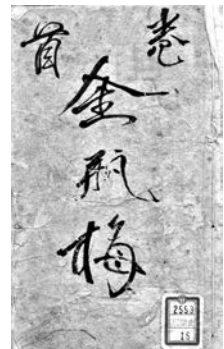 卷首
金瓶梅
2553
15